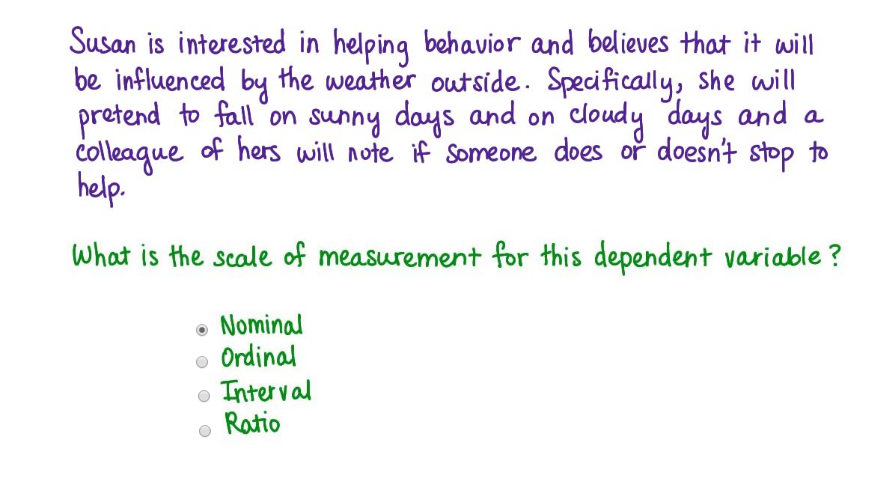 Susan is interested in helping behavior and believes that it will
be influenced by the weather outside. Specifically, she will
pretend to fall on sunny days and on cloudy days and a
colleague of hers will note if someone does or doesn't stop to
help.
What is the scale of measurement for this dependent variable?
Nominal
Ordinal
Interval
Ratio